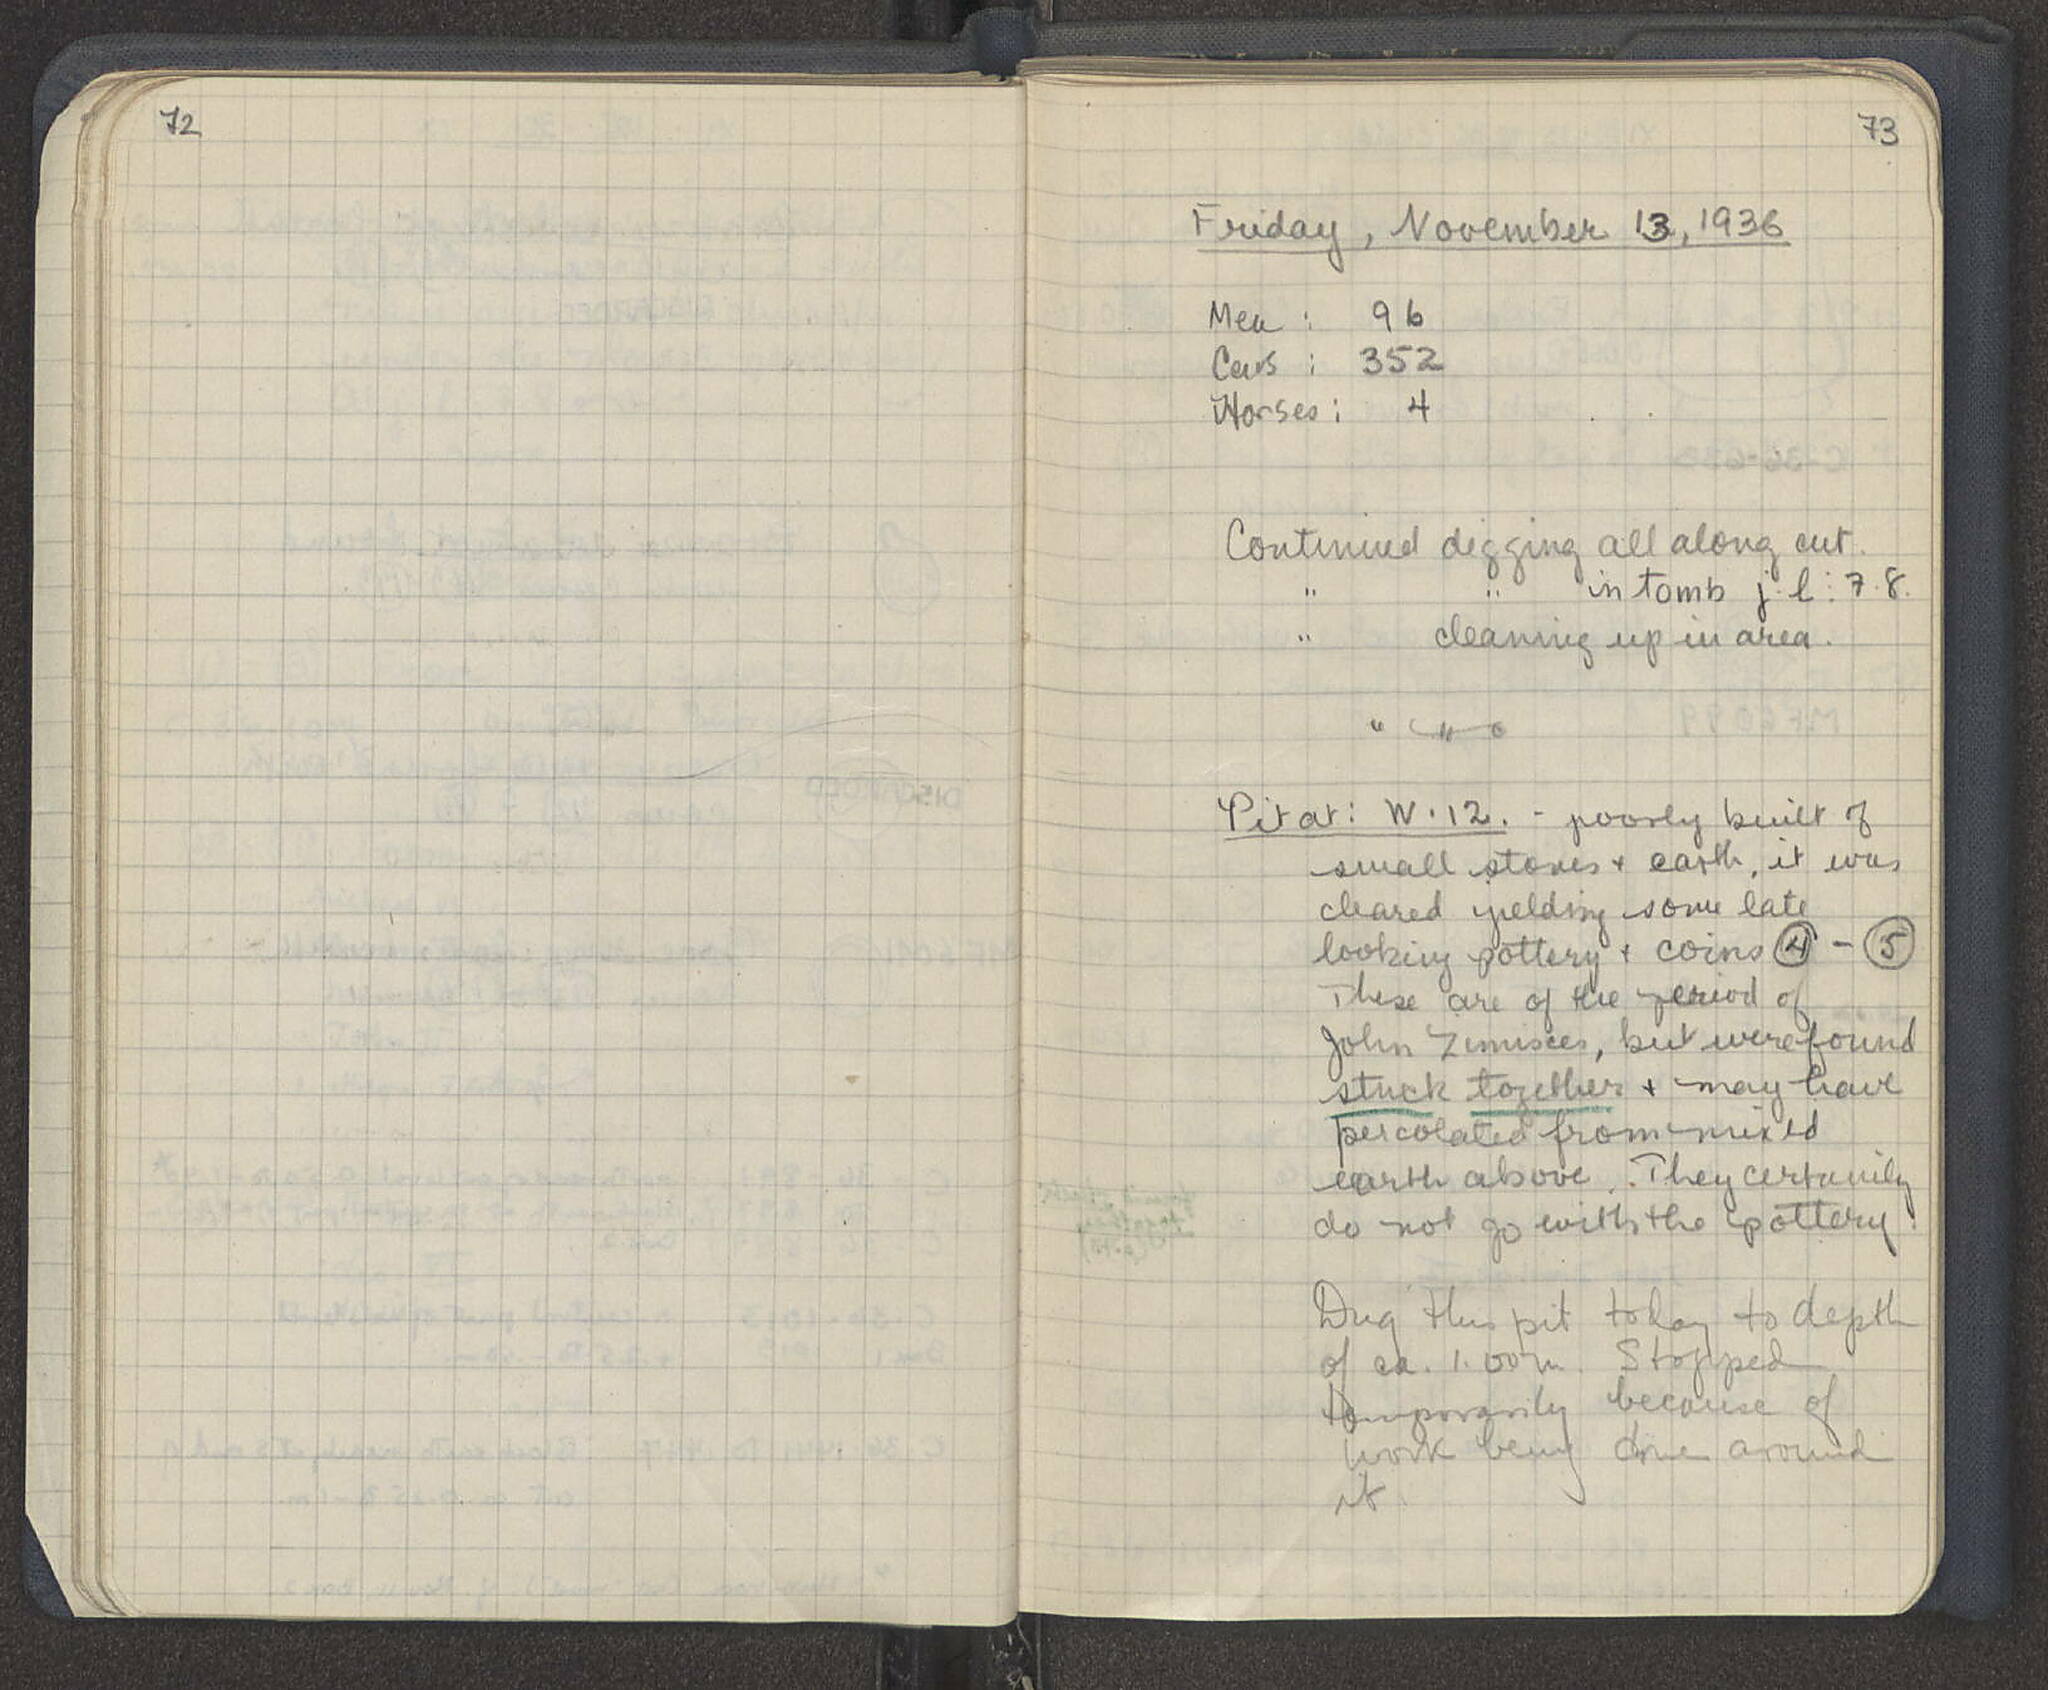 72
73
Friday, November 13, 1936
Men : 96
Cars : 352
Horses : 4
Continued digging all along cut.
" " in tomb j-l : 7-8.
" cleaning up in area.
Pit at : W·12. - poorly built of
small stones + earth, it was
cleared yielding some late
looking pottery + coins ④ - ⑤
These are of the period of
John Zimisces, but were found
stuck together + may have
percolated from mixed
earth above. They certainly
do not go with the pottery.
Dug this pit today to depth
of ca. 1.00 m. Stopped
temporarily because of
work being done around
it.